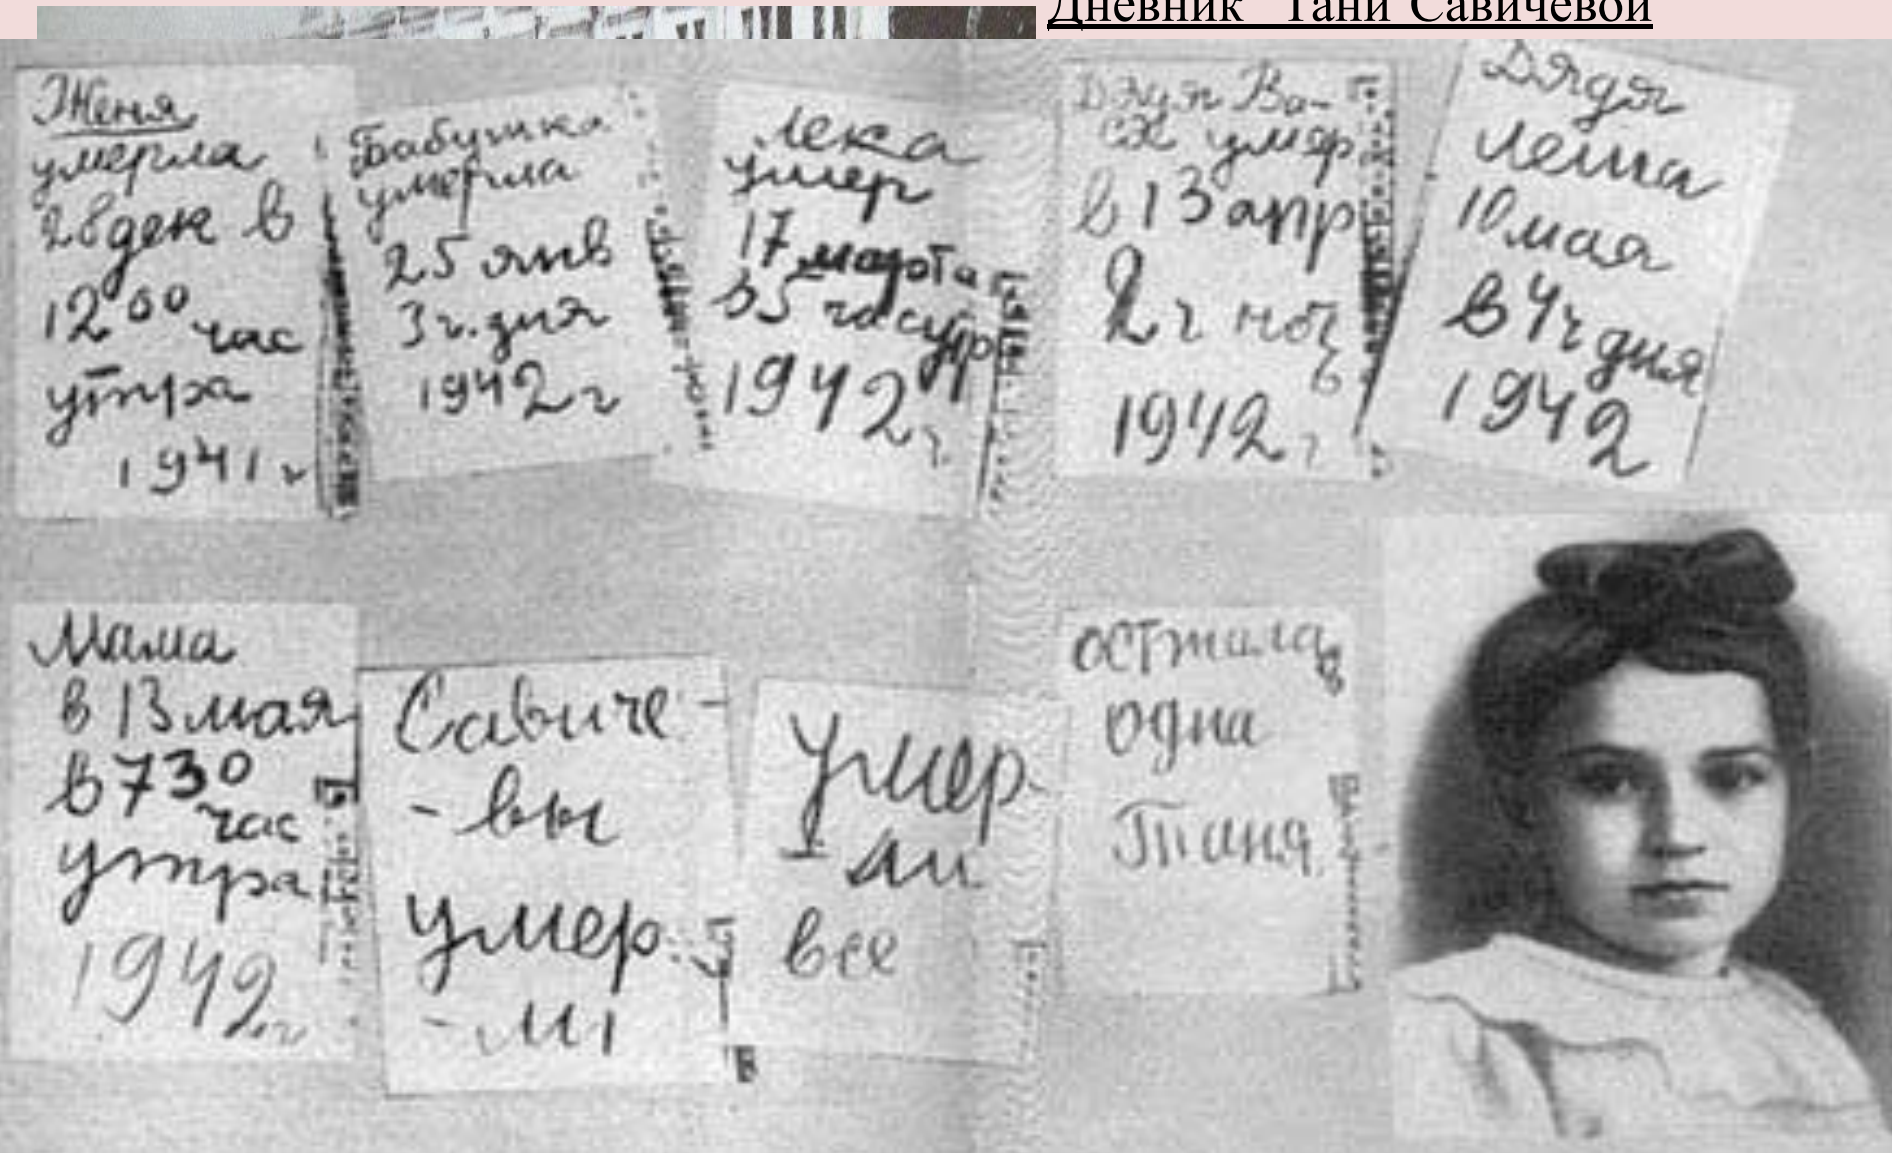 Дневник Тани Савичевой
Женя
умерла
28 дек в
12 00 час
утра
1941 г
Бабушка
умерла
25 янв
3 ч. дня
1942 г
Лека
умер
17 марта
в 5 час утр
1942 г
Дядя Ва-
ся умер
в 13 апр
2 ч ноч
1942 г
Дядя
Леша
10 мая
в 4 ч дня
1942
Мама
в 13 мая
в 7 30
час
утра
1942 г
Савиче-
-вы
умер
-ли
Умер-
-ли
все
Осталась
одна
Таня